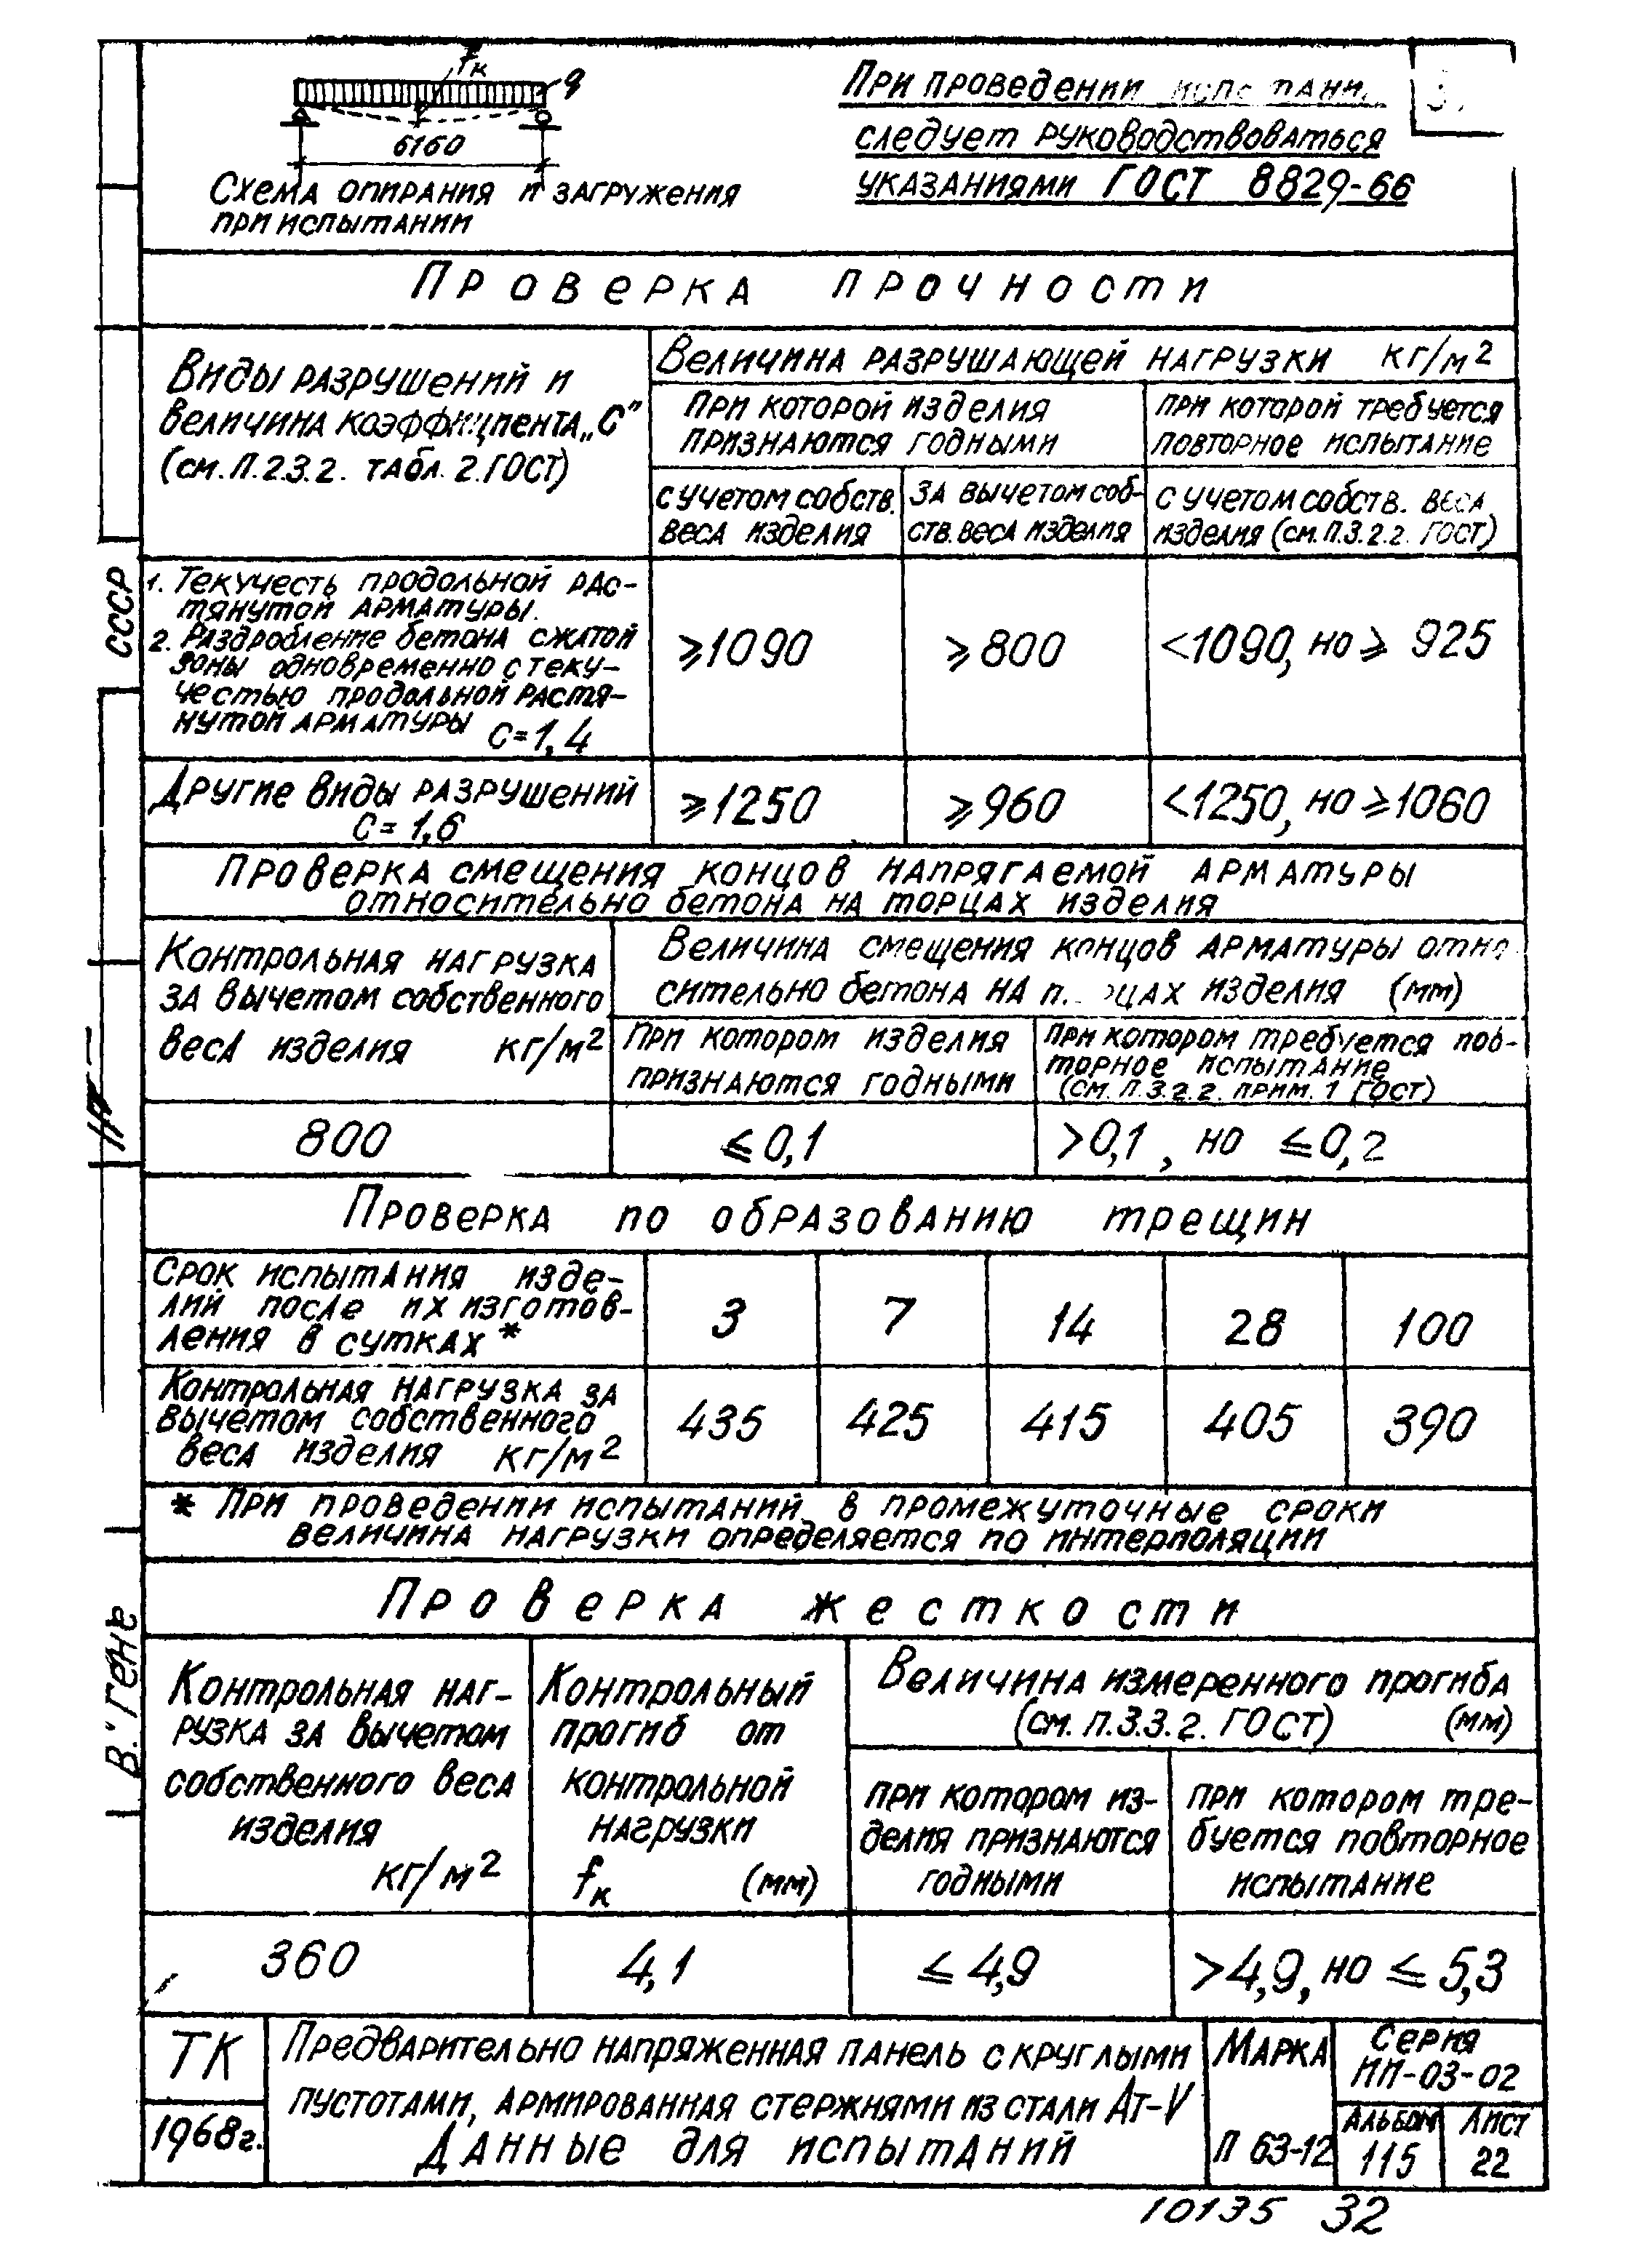 fк
q
6160
Схема опирания и загружения
при испытании
При проведении
следует руководствоваться
указаниями ГОСТ 8829-66
Проверка прочности
Виды разрушений и
величина коэффициента „С"
(см. п. 2.3.2. табл. 2. ГОСТ)
Величина разрушающей нагрузки кг/м²
при которой изделия
признаются годными
при которой требуется
повторное испытание
с учетом собств.
веса изделия
за вычетом соб-
ств. веса изделия
с учетом собств. веса
изделия (см. п. 3.2.2. ГОСТ)
1. Текучесть продольной рас-
тянутой арматуры.
2. Раздробление бетона сжатой
зоны одновременно с теку-
честью продольной растя-
нутой арматуры С=1,4
⩾1090
⩾800
<1090, но ⩾ 925
Другие виды разрушений
С=1,6
⩾1250
⩾960
<1250, но ⩾1060
Проверка смещения концов напрягаемой арматуры
относительно бетона на торцах изделия
Контрольная нагрузка
за вычетом собственного
веса изделия кг/м²
Величина смещения концов арматуры отно
сительно бетона на изделия (мм)
при котором изделия
признаются годными
при котором требуется пов-
торное испытание
(см. п. 3.2.2. прим. 1 ГОСТ)
800
⩽0,1
>0,1, но ⩽0,2
Проверка по образованию трещин
Срок испытания изде-
лий после их изготов-
ления в сутках *
3
7
14
28
100
Контрольная нагрузка за
вычетом собственного
веса изделия кг/м²
435
425
415
405
390
* При проведении испытаний в промежуточные сроки
величина нагрузки определяется по интерполяции
Проверка жесткости
Контрольная наг-
рузка за вычетом
собственного веса
изделия
кг/м²
Контрольный
прогиб от
контрольной
нагрузки
fк (мм)
Величина измеренного прогиба
(см. п. 3.3.2. ГОСТ) (мм)
при котором из-
делия признаются
годными
при котором тре-
буется повторное
испытание
360
4,1
⩽ 4,9
>4,9, но ⩽ 5,3
ТК
1968г.
Предварительно напряженная панель с круглыми
пустотами, армированная стержнями из стали Ат-V
Данные для испытаний
Марка
П 63-12
Серия
ИИ-03-02
Альбом
115
Лист
22
10135 32
СССР